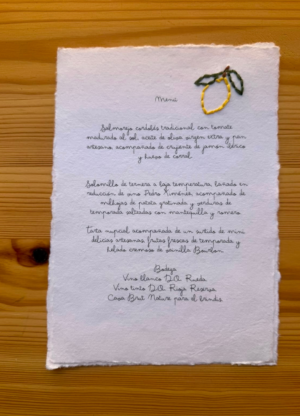 Menú
Salmorejo cordobés tradicional con tomate
madurado al sol, aceite de oliva virgen extra y pan
artesano, acompañado de crujiente de jamón ibérico
y huevo de corral.
Solomillo de ternera a baja temperatura, bañado en
reducción de vino Pedro Ximénez, acompañado de
milhojas de patata gratinada y verduras de
temporada salteadas con mantequilla y romero.
Tarta nupcial acompañada de un surtido de mini
delicias artesanas, frutas frescas de temporada y
helado cremoso de vainilla Bourbon.
Bodega
Vino blanco D.O. Rueda
Vino tinto D.O. Rioja Reserva
Cava Brut Nature para el brindis